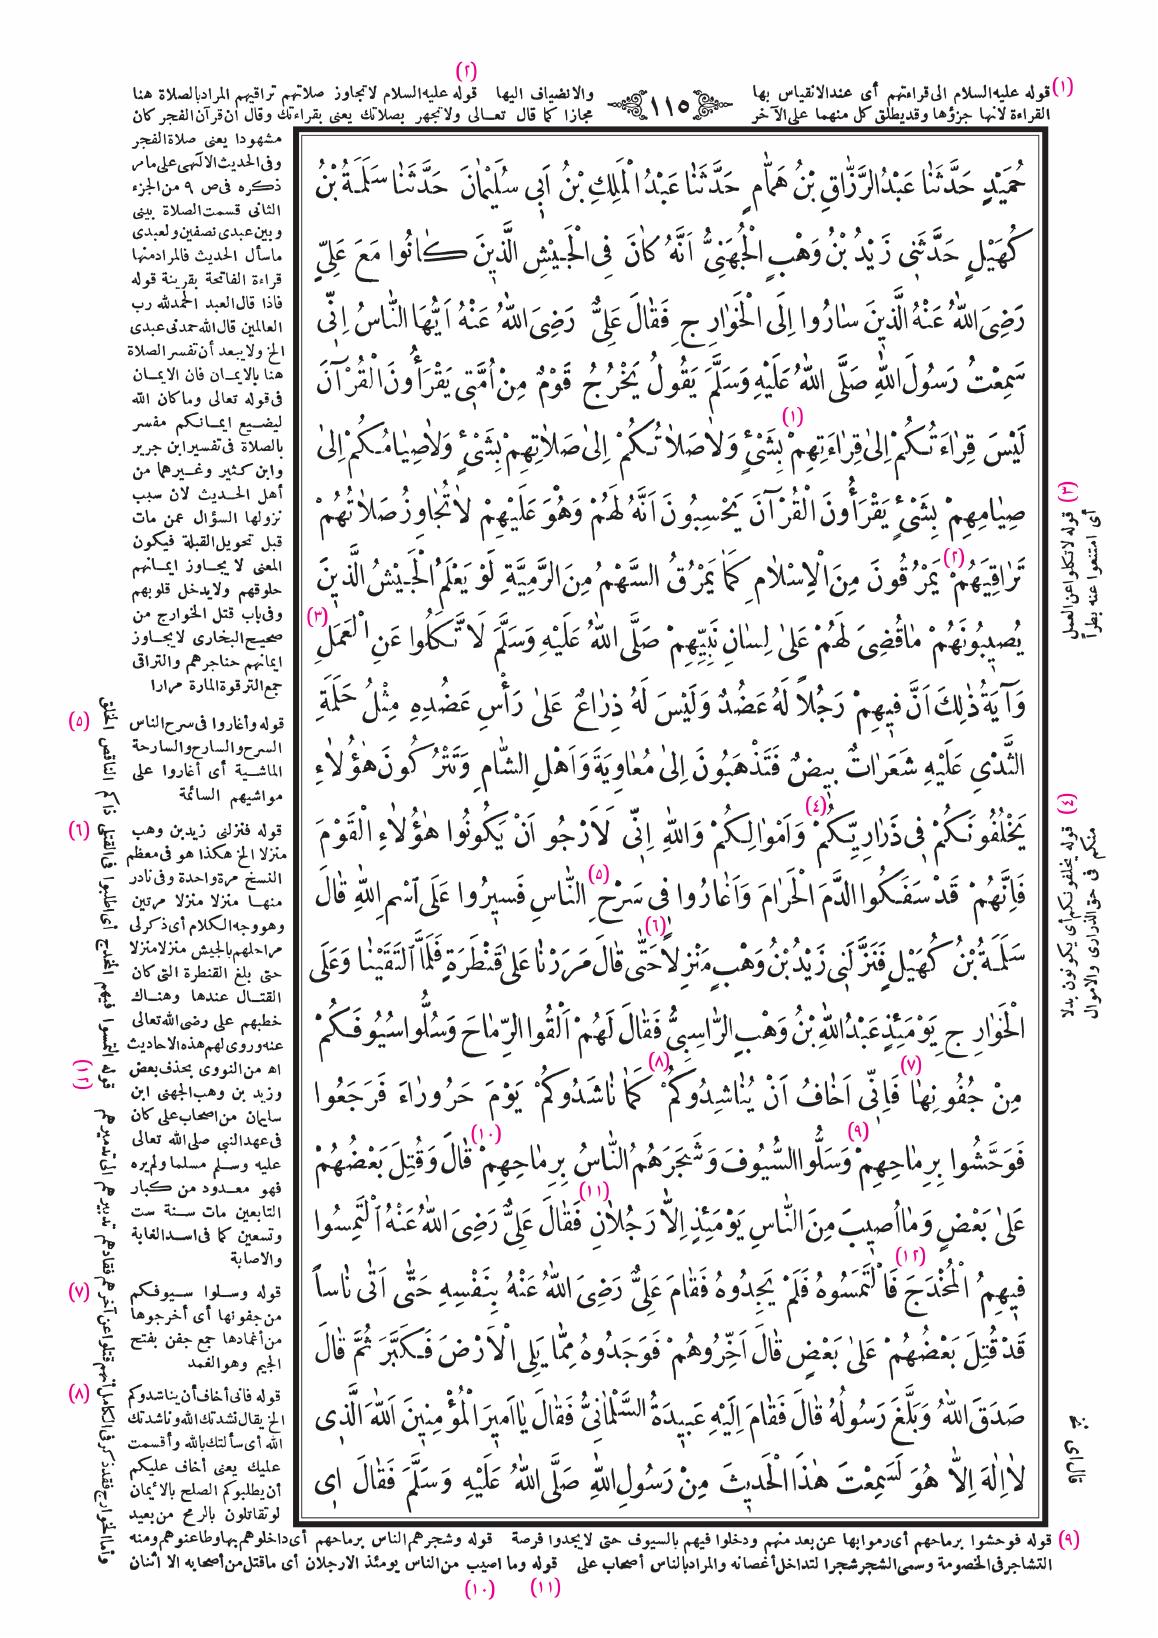 (١) قوله عليه السلام الى قراءتهم أى عند الانقياس بها
القراءة لانها جزؤها وقديطلق كل منهما على الآخر
١١٥
(٢)
والانضياف اليها قوله عليه السلام لاتجاوز صلاتهم تراقيهم المراد بالصلاة هنا
مجازا كما قال تعـالى ولاتجهر بصلاتك يعنى بقراءتك وقال ان قرآن الفجر كان
حُمَيْدٍ حَدَّثَنَا عَبْدُ الرَّزَّاقِ بْنُ هَمَّامٍ حَدَّثَنَا عَبْدُ الْمَلِكِ بْنُ اَبِي سُلَيْمَانَ حَدَّثَنَا سَلَمَةُ بْنُ
كُهَيْلٍ حَدَّثَنِي زَيْدُ بْنُ وَهْبٍ الْجُهَنِىُّ اَنَّهُ كَانَ فِى الْجَيْشِ الَّذِينَ كَانُوا مَعَ عَلِيٍّ
رَضِىَ اللّٰهُ عَنْهُ الَّذِينَ سَارُوا اِلَى الْخَوَارِجِ فَقَالَ عَلِىٌّ رَضِىَ اللّٰهُ عَنْهُ اَيُّهَا النَّاسُ اِنِّى
سَمِعْتُ رَسُولَ اللّٰهِ صَلَّى اللّٰهُ عَلَيْهِ وَسَلَّمَ يَقُولُ يَخْرُجُ قَوْمٌ مِنْ اُمَّتِى يَقْرَأُونَ الْقُرْآنَ
لَيْسَ قِرَاءَتُكُمْ اِلىٰ قِرَاءَتِهِمْ (١) بِشَىْءٍ وَلَا صَلَاتُكُمْ اِلىٰ صَلَاتِهِمْ بِشَىْءٍ وَلَا صِيَامُكُمْ اِلىٰ
صِيَامِهِمْ بِشَىْءٍ يَقْرَأُونَ الْقُرْآنَ يَحْسِبُونَ اَنَّهُ لَهُمْ وَهُوَ عَلَيْهِمْ لَا تُجَاوِزُ صَلَاتُهُمْ
تَرَاقِيَهُمْ (٢) يَمْرُقُونَ مِنَ الْاِسْلَامِ كَمَا يَمْرُقُ السَّهْمُ مِنَ الرَّمِيَّةِ لَوْ يَعْلَمُ الْجَيْشُ الَّذِينَ
يُصِيبُونَهُمْ مَا قُضِىَ لَهُمْ عَلىٰ لِسَانِ نَبِيِّهِمْ صَلَّى اللّٰهُ عَلَيْهِ وَسَلَّمَ لَا تَّكَلُوا عَنِ الْعَمَلِ (٣)
وَآيَةُ ذٰلِكَ اَنَّ فِيهِمْ رَجُلاً لَهُ عَضُدٌ وَلَيْسَ لَهُ ذِرَاعٌ عَلىٰ رَأْسِ عَضُدِهِ مِثْلُ حَلَمَةِ
الثَّدْىِ عَلَيْهِ شَعَرَاتٌ بِيضٌ فَتَذْهَبُونَ اِلىٰ مُعَاوِيَةَ وَاَهْلِ الشَّامِ وَتَتْرُكُونَ هٰؤُلَاءِ
يَخْلُفُونَكُمْ فِى ذَرَارِيِّكُمْ (٤) وَاَمْوَالِكُمْ وَاللّٰهِ اِنِّى لَاَرْجُو اَنْ يَكُونُوا هٰؤُلَاءِ الْقَوْمَ
فَاِنَّهُمْ قَدْ سَفَكُوا الدَّمَ الْحَرَامَ وَاَغَارُوا فِى سَرْحِ (٥) النَّاسِ فَسِيرُوا عَلَى اسْمِ اللّٰهِ قَالَ
سَلَمَةُ بْنُ كُهَيْلٍ فَنَزَّلَنِى زَيْدُ بْنُ وَهْبٍ مَنْزِلاً (٦) حَتّٰى قَالَ مَرَرْنَا عَلىٰ قَنْطَرَةٍ فَلَمَّا الْتَقَيْنَا وَعَلَى
الْخَوَارِجِ يَوْمَئِذٍ عَبْدُ اللّٰهِ بْنُ وَهْبٍ الرَّاسِبِىُّ فَقَالَ لَهُمْ اَلْقُوا الرِّمَاحَ وَسُلُّوا سُيُوفَكُمْ
مِنْ جُفُونِهَا (٧) فَاِنِّى اَخَافُ اَنْ يُنَاشِدُوكُمْ (٨) كَمَا نَاشَدُوكُمْ يَوْمَ حَرُورَاءَ فَرَجَعُوا
فَوَحَّشُوا بِرِمَاحِهِمْ (٩) وَسَلُّوا السُّيُوفَ وَشَجَرَهُمُ النَّاسُ بِرِمَاحِهِمْ (١٠) قَالَ وَقُتِلَ بَعْضُهُمْ
عَلىٰ بَعْضٍ وَمَا اُصِيبَ مِنَ النَّاسِ يَوْمَئِذٍ اِلَّا رَجُلَانِ (١١) فَقَالَ عَلِىٌّ رَضِىَ اللّٰهُ عَنْهُ الْتَمِسُوا
فِيهِمُ الْمُخْدَجَ (١٢) فَالْتَمَسُوهُ فَلَمْ يَجِدُوهُ فَقَامَ عَلِىٌّ رَضِىَ اللّٰهُ عَنْهُ بِنَفْسِهِ حَتّٰى اَتٰى نَاساً
قَدْ قُتِلَ بَعْضُهُمْ عَلىٰ بَعْضٍ قَالَ اَخِّرُوهُمْ فَوَجَدُوهُ مِمَّا يَلِى الْاَرْضَ فَكَبَّرَ ثُمَّ قَالَ
صَدَقَ اللّٰهُ وَبَلَّغَ رَسُولُهُ قَالَ فَقَامَ اِلَيْهِ عَبِيدَةُ السَّلْمَانِىُّ فَقَالَ يَا اَمِيرَ الْمُؤْمِنِينَ اَللّٰهَ الَّذِى
لَا اِلٰهَ اِلَّا هُوَ لَسَمِعْتَ هٰذَا الْحَدِيثَ مِنْ رَسُولِ اللّٰهِ صَلَّى اللّٰهُ عَلَيْهِ وَسَلَّمَ فَقَالَ اِى
قال اى نخ
(٣) قوله لا تكلوا عن العمل
أى امتنعوا عنه بطراً
(٤) قوله يخلفونكم أى يكونون بدلا
منكم فى حق الذرارى والاموال
مشهودا يعنى صلاة الفجر
وفى الحديث الالٓهى على مامر
ذكره فى ص ٩ من الجزء
الثانى قسمت الصلاة بينى
وبين عبدى نصفين ولعبدى
ماسأل الحديث فالمراد منها
قراءة الفاتحة بقرينة قوله
فاذا قال العبد الحمدلله رب
العالمين قال الله حمدنى عبدى
الخ ولا يبعد أن تفسر الصلاة
هنا بالايمـان فان الايمـان
فى قوله تعالى وما كان الله
ليضيع ايمـانكم مفسر
بالصلاة فى تفسير ابن جرير
وابن كثير وغيرهما من
أهل الحديث لان سبب
نزولها السؤال عمن مات
قبل تحويل القبلة فيكون
المعنى لا يجاوز ايمـانهم
حلوقهم ولايدخل قلوبهم
وفى باب قتل الخوارج من
صحيح البخارى لا يجاوز
ايمانهم حناجرهم والتراقى
جمع الترقوة المارة مرارا
(٥) قوله وأغاروا فى سرح الناس
السرح والسارح والسارحة
الماشية أى أغاروا على
مواشيهم السائمة
(٦) قوله فنزلنى زيدبن وهب
منزلا الخ هكذا هو فى معظم
النسخ مرة واحدة وفى نادر
منها منزلا منزلا مرتين
وهو وجه الكلام أى ذكر لى
مراحلهم بالجيش منزلا منزلا
حتى بلغ القنطرة التى كان
القتال عندها وهناك
خطبهم على رضى الله تعالى
عنه وروى لهم هذه الاحاديث
اه من النووى بحذف بعض
وزيد بن وهب الجهنى ابن
سليمان من اصحاب على كان
فى عهد النبى صلى الله تعالى
عليه وسلم مسلما ولم يره
فهو معدود من كبار
التابعين مات سنة ست
وتسعين كما فى اسد الغابة
والاصابة
(٧) قوله وسلوا سيوفكم
من جفونها أى أخرجوها
من أغمادها جمع جفن بفتح
الجيم وهو الغمد
(٨) قوله فانى أخاف أن يناشدوكم
الخ يقال نشدتك الله وناشدتك
الله أى سألتك بالله وأقسمت
عليك يعنى أخاف عليكم
أن يطلبوكم الصلح بالايمان
لو تقاتلون بالرمح من بعيد
(١٢) قوله التمسوا فيهم المخدج أى اطلبوا فى القتلى ذاكم الناقص الخلق
وأما الخوارج فقد ذكر فى الكامل أنهم قتلوا عن آخرهم فقادهم تدبيرهم الى تدميرهم
(٩) قوله فوحشوا برماحهم أى رموا بها عن بعد منهم ودخلوا فيهم بالسيوف حتى لايجدوا فرصة قوله وشجرهم الناس برماحهم أى داخلوهم بها وطاعنوهم ومنه
التشاجر فى الخصومة وسمى الشجر شجرا لتداخل أغصانه والمراد بالناس أصحاب على قوله وما اصيب من الناس يومئذ الارجلان أى ماقتل من أصحابه الا اثنان
(١١) (١٠)